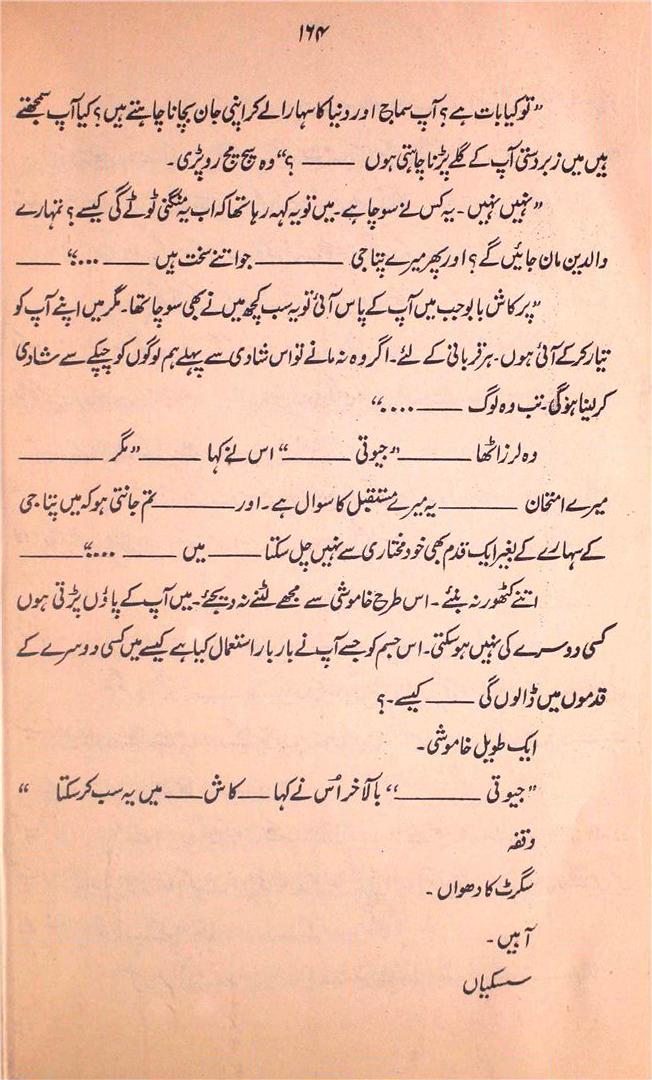 ۱۶۴
”تو کیا بات ہے؟ آپ سماج اور دنیا کا سہارا لے کر اپنی جان بچانا چاہتے ہیں؟ کیا آپ سمجھتے
ہیں میں زبردستی آپ کے گلے پڑنا چاہتی ہوں ——— ؟“ وہ سچ مچ رو پڑی۔
”نہیں نہیں۔ یہ کس نے سوچا ہے۔ میں تو یہ کہہ رہا تھا کہ اب یہ منگنی ٹوٹے گی کیسے؟ تمہارے
والدین مان جائیں گے؟ اور پھر میرے پتا جی ——— جو اتنے سخت ہیں ——— ....“ ———
”پرکاش بابو جب میں آپ کے پاس آئی تو یہ سب کچھ میں نے بھی سوچا تھا۔ مگر میں اپنے آپ کو
تیار کر کے آئی ہوں۔ ہر قربانی کے لئے۔ اگر وہ نہ مانے تو اس شادی سے پہلے ہم لوگوں کو چپکے سے شادی
کر لینا ہوگی۔ تب وہ لوگ ——— ....“
وہ لرز اٹھا ——— ”جیوتی ———“ اس نے کہا ——— ”مگر ———
میرے امتحان ——— یہ میرے مستقبل کا سوال ہے۔ اور ——— تم جانتی ہو کہ میں پتا جی
کے سہارے کے بغیر ایک قدم بھی خود مختاری سے نہیں چل سکتا ——— میں ——— ....“ ———
اتنے کٹھور نہ بنئے۔ اس طرح خاموشی سے مجھے لٹنے نہ دیجئے۔ میں آپ کے پاؤں پڑتی ہوں
کسی دوسرے کی نہیں ہو سکتی۔ اس جسم کو جسے آپ نے بار بار استعمال کیا ہے کیسے میں کسی دوسرے کے
قدموں میں ڈالوں گی ——— کیسے۔؟
ایک طویل خاموشی۔
”جیوتی ———“ بالآخر اُس نے کہا — کاش — میں یہ سب کر سکتا “
وقفہ
سگرٹ کا دھواں۔
آہیں۔
سسکیاں